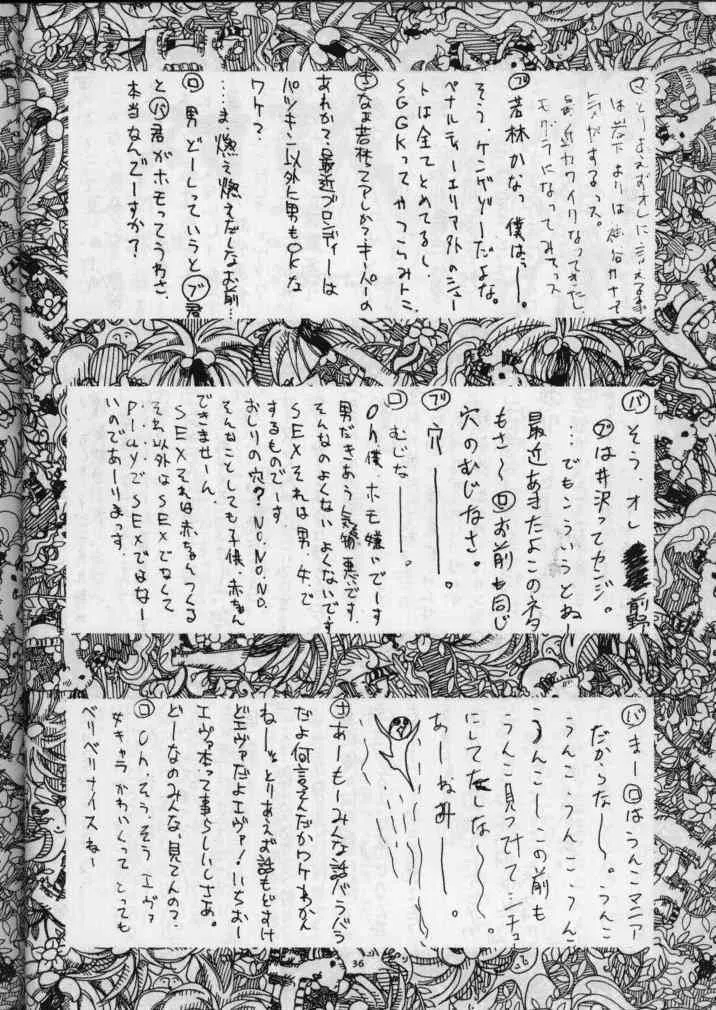 マ とりあえずオレに言える事
は岩下よりは
気がするっス。
最近カワイクなってきたし
モグラになってみてっス
ブ 若林かなっ僕はっー。
そう、ケンゲゾーだよな。
ペナルティーエリア外のシュー
トは全てとめてるし、
SGGKってやつらみトニ
なぁ若林ってアレか?キーパーの
あれか?最近ブロンディーは
パツキン以外に男もOKな
ワケ?
…ま、燃え燃えだしなお前…
ロ 男どーしっていうとブ君
とバ君がホモってうわさ、
本当なんでーすか?
バ そう、オレ 前野
ブは井沢ってカンジ。
…でもこういうとねー
最近あきたよこのネタ
もさ〜ロお前も同じ
穴のむじなさ。
ブ 穴ーーー。
ロ むじなーーー。
Oh、僕、ホモ嫌いでーす
男だきあう気持悪です。
そんなのよくないよくないです
SEXそれは男、女で
するものでーす。
おしりの穴?NO.NO.NO.
そんなことしても子供、赤ちゃん
できませーん。
SEXそれは赤ちゃんつくる
それ以外はSEXでなくして
PLAYでSEXではなー
いのでありまっす。
バ まーロはうんこマニア
だからなー〜。うんこ
うんこ、うんこ、うんこ
うんこーこの前も
うんこ見ってて
にしてたしな〜〜。
あーねみーー。
ナ あーもーみんな話バラバラ
だよ何言ってんだかワケわかん
ねーッとりあえず話もどすけ
どエヴァだよエヴァ!いちおー
エヴァ本って事らしいしさぁ。
どーなのみんな、見てんの?
ロ Oh、そう、そうエヴァ
女キャラかわいくってとっても
ベリベリナイスねー
36